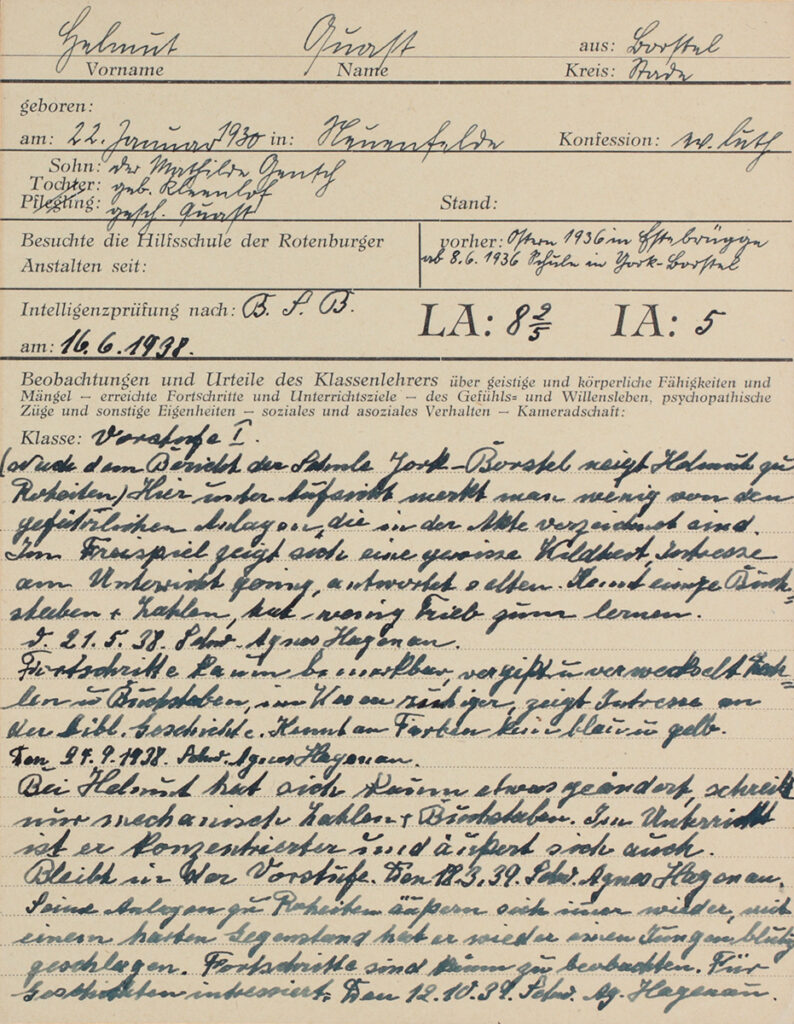 Helmut Quast aus: Borstel
Vorname Name Kreis: Stade
geboren:
am: 22. Januar 1930 in: Neuenfelde Konfession: ev. luth
Sohn: der Mathilde Gensch
Tochter: geb. Kleenlof
Pflegling: gesch. Quast Stand:
Besuchte die Hilfsschule der Rotenburger vorher: Ostern 1936 in Estebrügge
Anstalten seit: ab 8.6.1936 Schule in York-Borstel
Intelligenzprüfung nach: B. S. B. LA: 8 2/5 IA: 5
am: 16.6.1938.
Beobachtungen und Urteile des Klassenlehrers über geistige und körperliche Fähigkeiten und
Mängel – erreichte Fortschritte und Unterrichtsziele – des Gefühls- und Willensleben, psychopathische
Züge und sonstige Eigenheiten – soziales und asoziales Verhalten – Kameradschaft:
Klasse: Vorstufe I.
(Nach dem Bericht der Schule York-Borstel neigt Helmut zu
Roheiten) Hier unter Aufsicht merkt man wenig von den
gefährlichen Anlagen, die in der Akte verzeichnet sind.
Im Freispiel zeigt sich eine gewisse Wildheit, Intresse
am Unterricht gering, antwortet selten. Kennt einige Buch-
staben + Zahlen, hat wenig Trieb zum lernen.
d. 21.5.38. Schw. Agnes Hagenau.
Fortschritte kaum bemerkbar, vergißt u verwechselt Zah-
len u Buchstaben, im Wesen ruhiger, zeigt Intresse an
der bibl. Geschichte. Kennt an Farben nur blau u gelb.
Den 24.9.1938. Schw. Agnes Hagenau.
Bei Helmut hat sich kaum etwas geändert, schreibt
nur mechanisch Zahlen + Buchstaben. Im Unterricht
ist er konzentrierter und äußert sich auch.
Bleibt in der Vorstufe. Den 18.3.39. Schw. Agnes Hagenau.
Seine Anlagen zu Roheiten äußern sich imer wieder, mit
einem harten Gegenstand hat er wieder einen Jungen blutig
geschlagen. Fortschritte sind kaum zu beobachten. Für
Geschichten interessiert. Den 12.10.39. Schw. Ag. Hagenau.